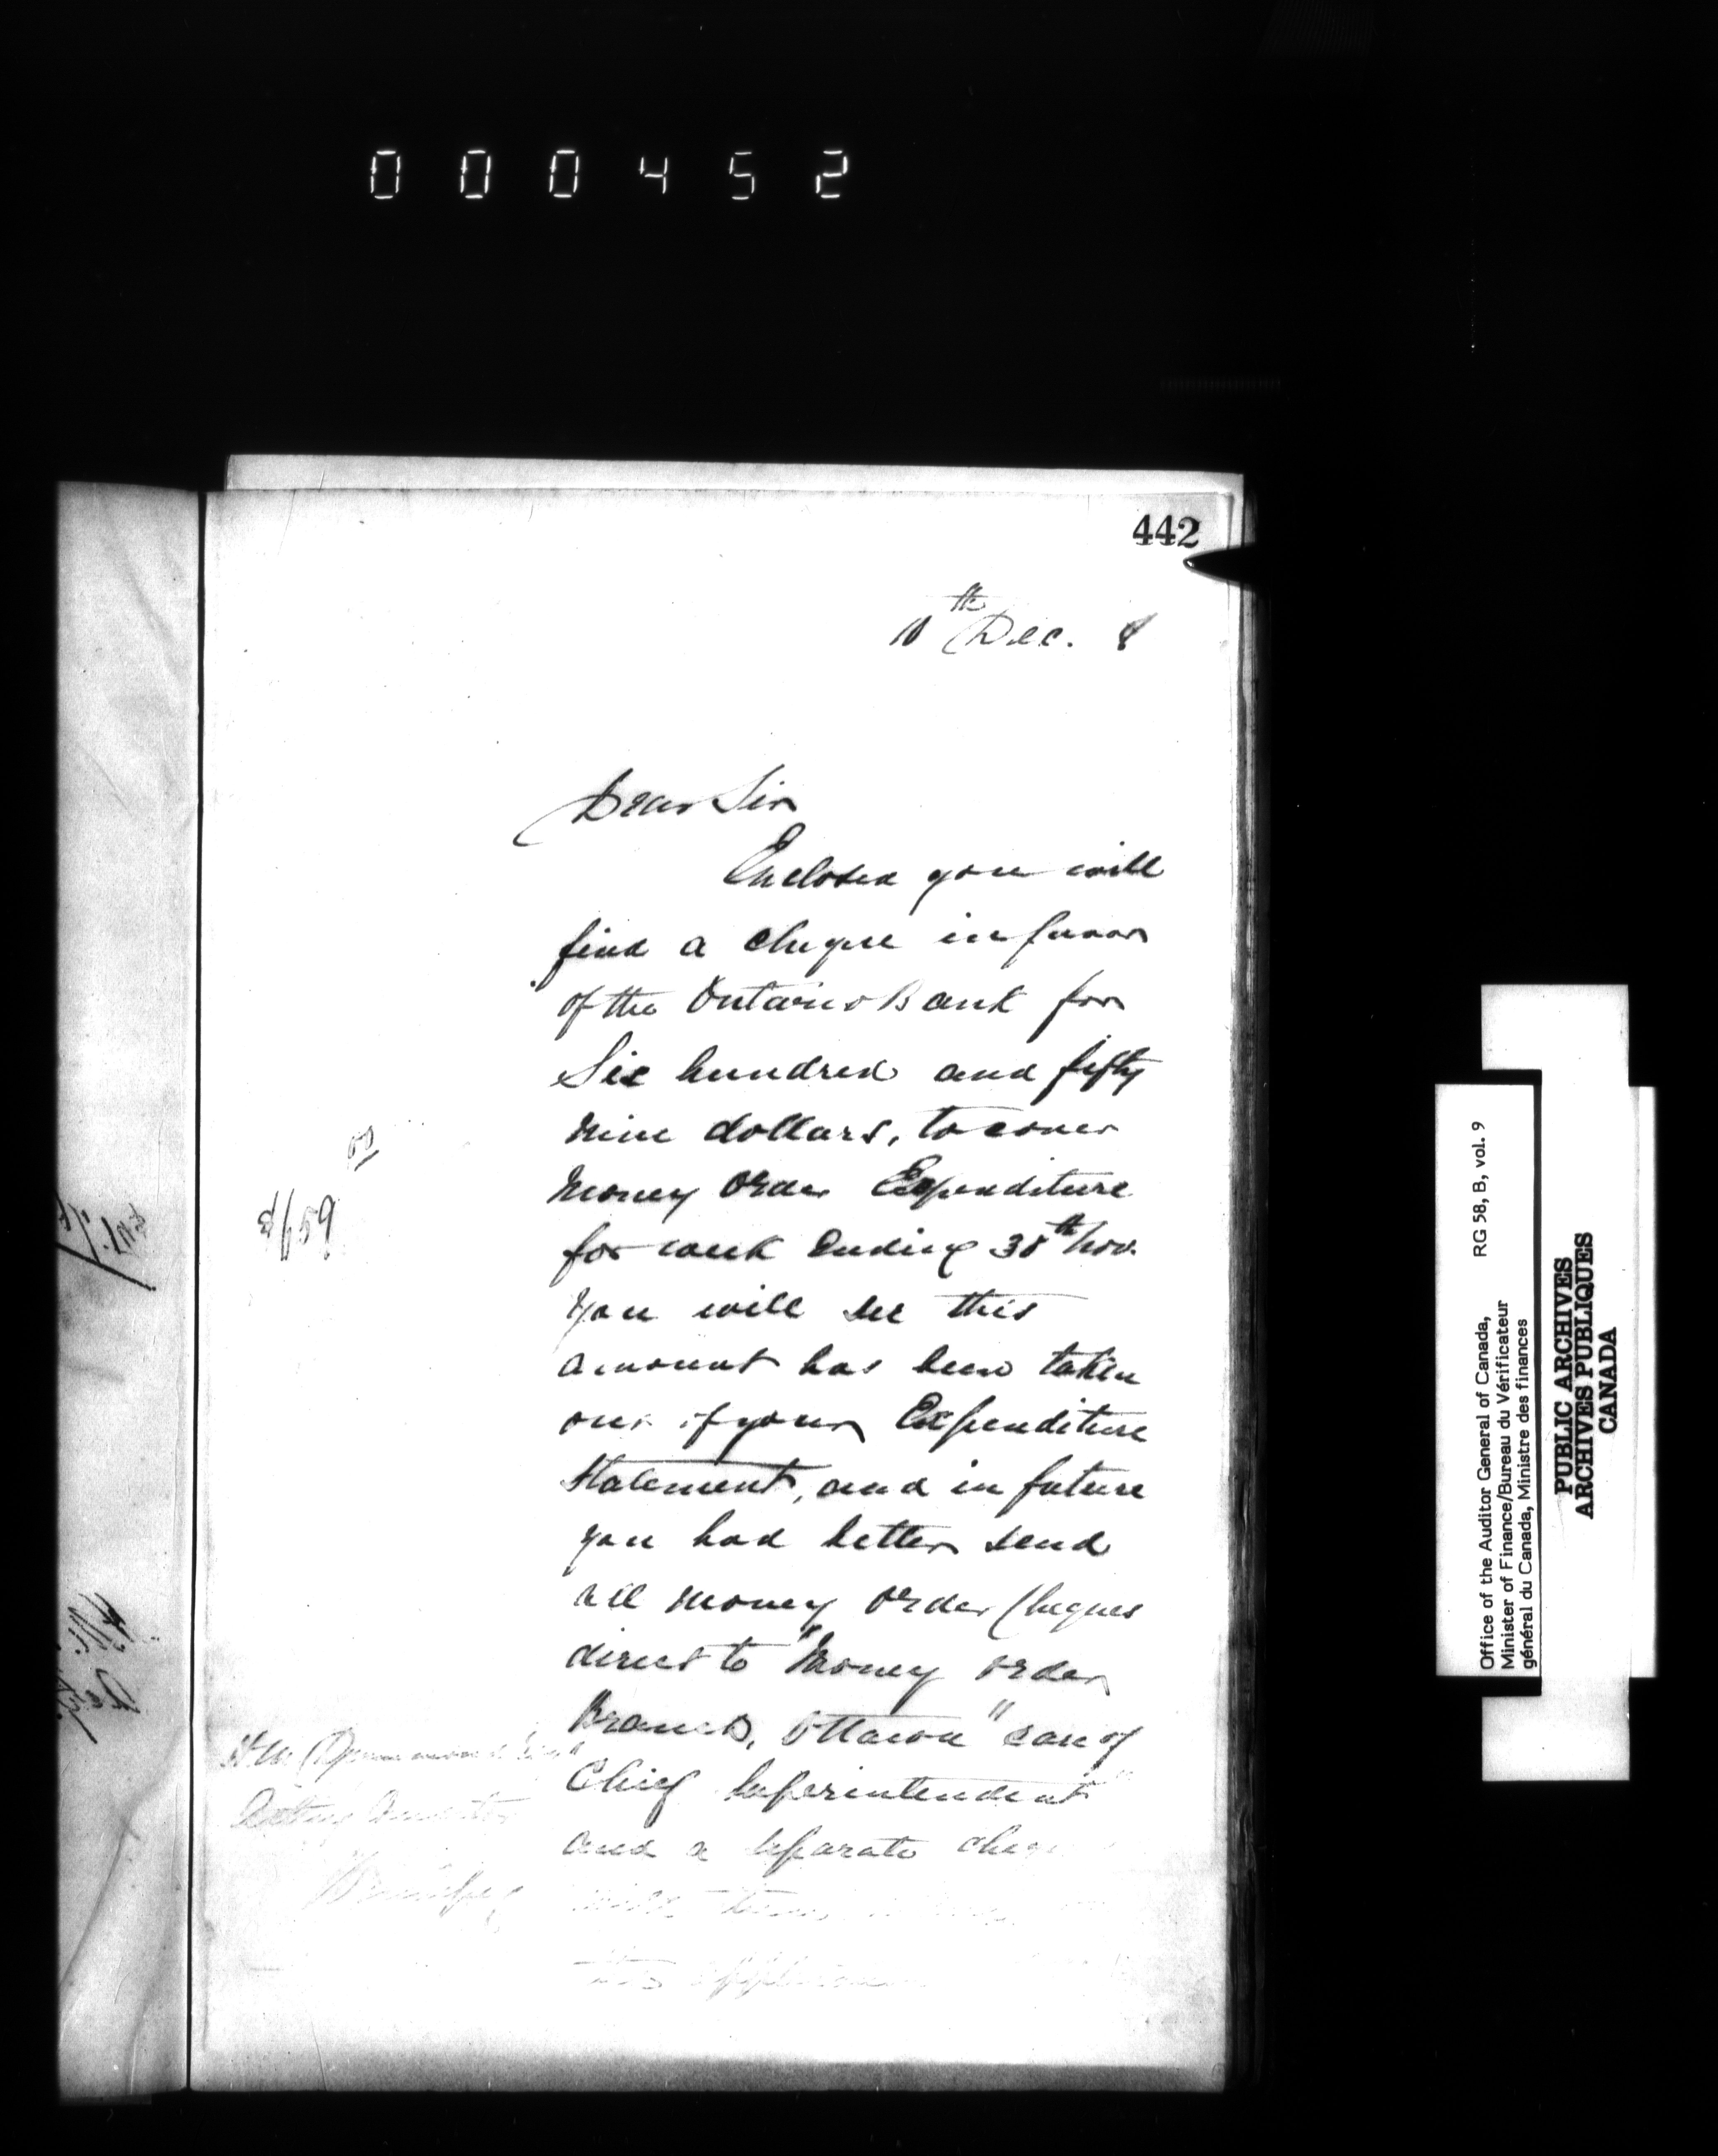 000452
442
10th Dec. 8
Dear Sir
Enclosed you will
find a cheque in favor
of the Ontario Bank for
Six hundred and fifty
nine dollars, to cover
Money Order Expenditure
for week Ending 30th Nov.
You will see this
amount has been taken
out of your Expenditure
Statement, and in future
you had better send
all Money Order Cheques
direct to "Money Order
Branch, Ottawa" care of
"Chief Superintendent"
and a separate cheque
will
this
$659
Winnipeg
Office of the Auditor General of Canada,
Minister of Finance/Bureau du Vérificateur
général du Canada, Ministre des finances
RG 58, B, vol. 9
PUBLIC ARCHIVES
ARCHIVES PUBLIQUES
CANADA